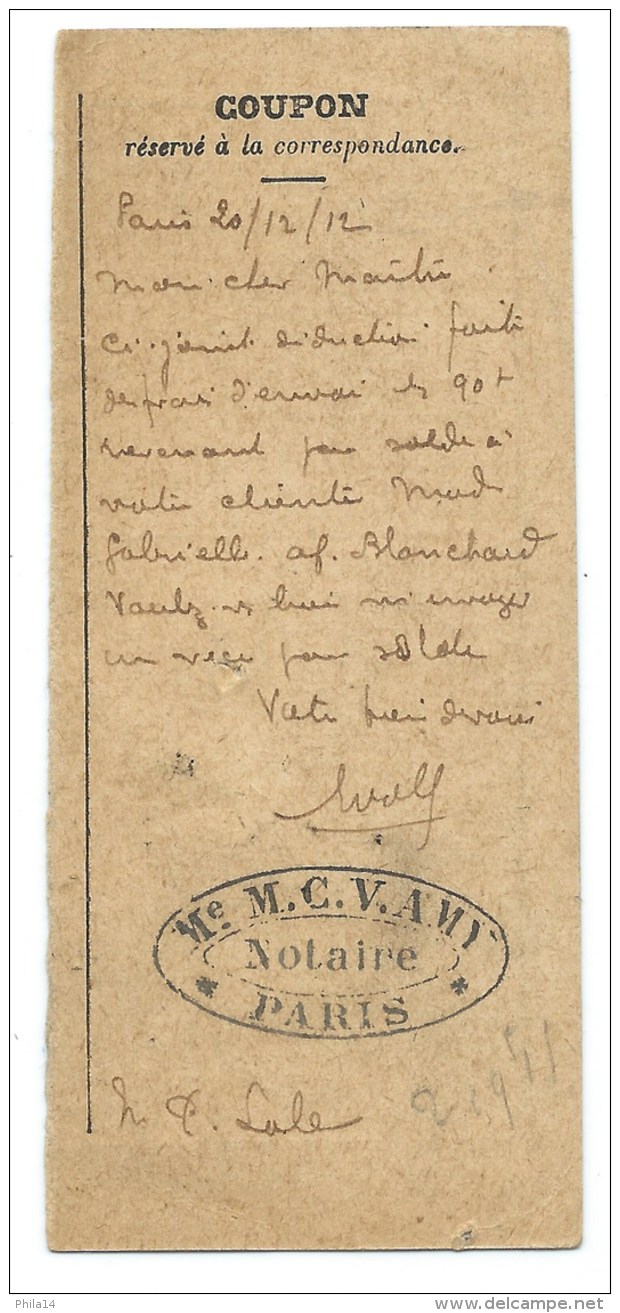 COUPON
réservé à la correspondance.
Paris 20/12/12
Mon cher Maître
Ci-joint déduction faite
des frais d'envoi
revenant pour solde à
votre cliente Mad
Gabrielle. af. Blanchard
bien m'envoyer
un reçu pour solde
Votre bien dévoué
Me M.C.V. AMY
Notaire
* PARIS *
Phila14
www.delcampe.net